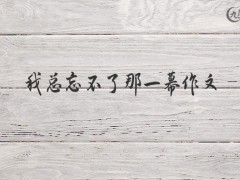 我总忘不了那一幕作文